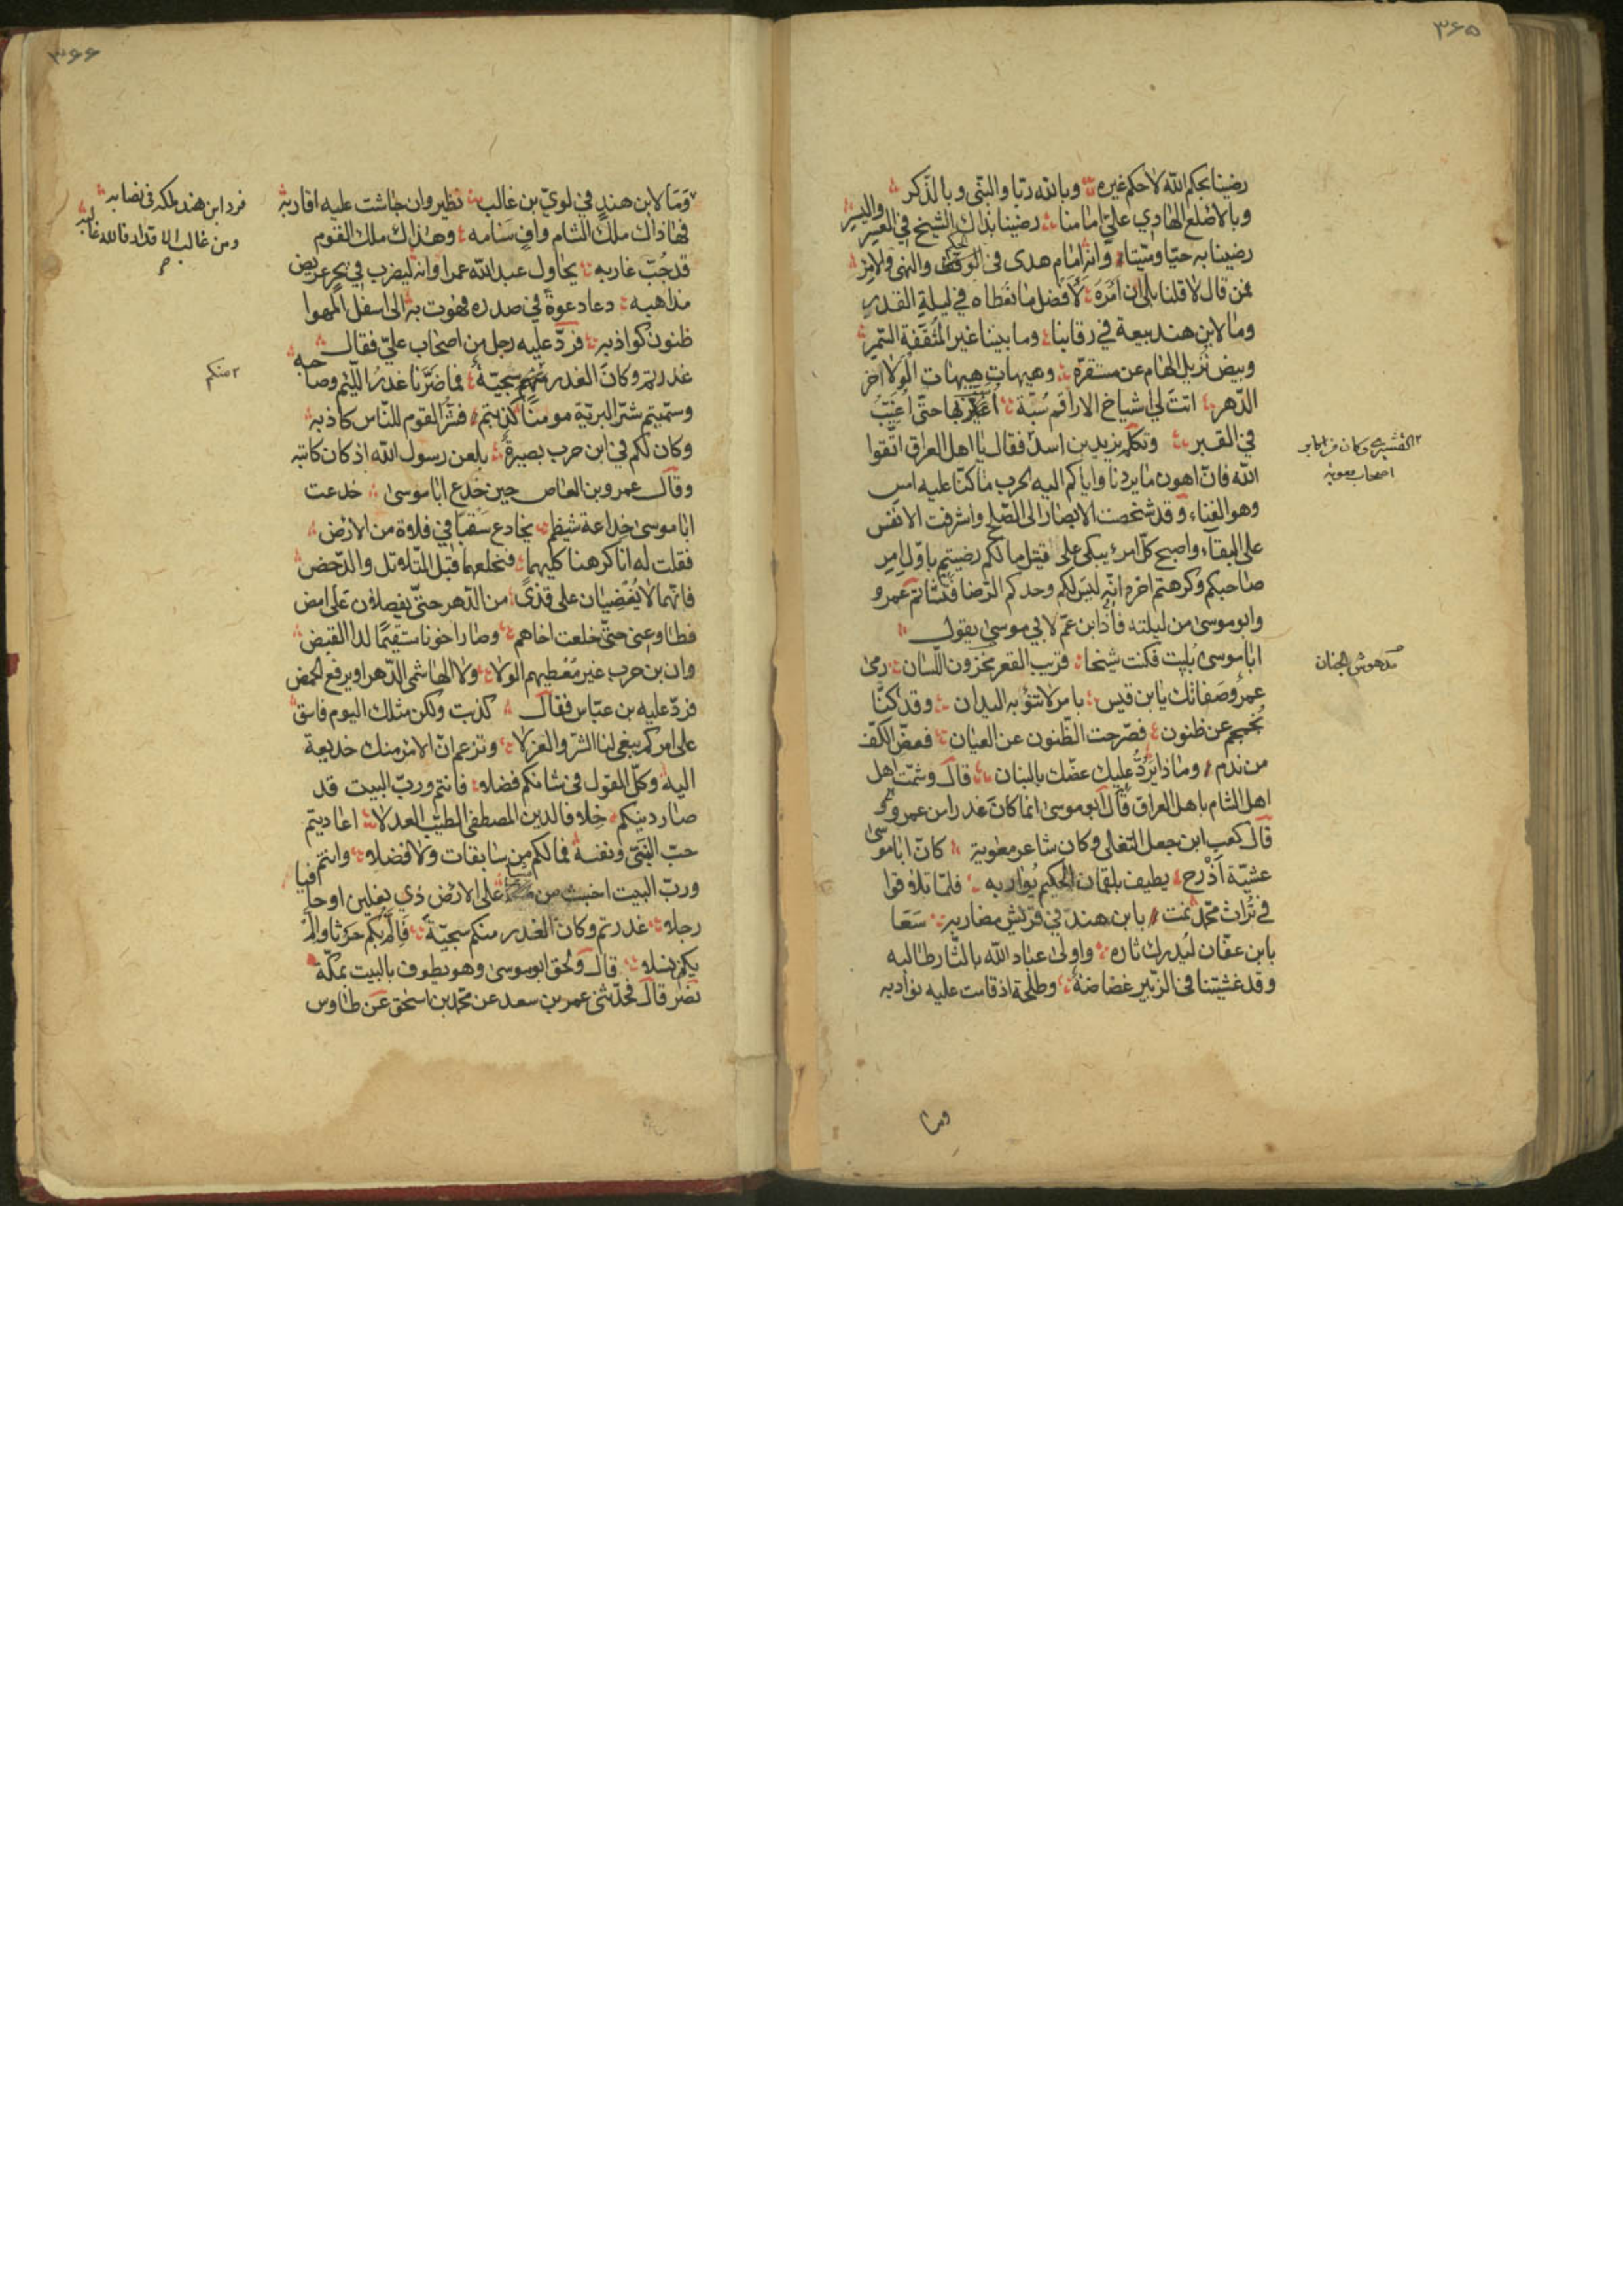 ۳۶۵
رضينا بحكم الله لا حكم غيره وبالله ربا والنبى وبالذكر
وبالاصلع الهادي علي امامنا رضينا بذاك الشيخ في العسر واليسر
رضينا به حيا وميتا وانه امام هدى فى الحكم والنهى والامر
فمن قال لا قلنا بلى ان امره لافضل ما نعطاه في ليلة القدر
وما لابن هند بيعة في رقابنا وما بيننا غير المثقفة السمر
وبيض تزيل الهام عن مستقره وهيهات هيهات الولا اخر
الدهر اتت لي اشياخ الاراقم سبة اعير بها حتى اغيب
في القبر وتكلم يزيد بن اسد فقال يا اهل العراق اتقوا
٢ القشيرى وكان من
اصحاب معوية
الله فان اهون ما يردنا واياكم اليه الحرب ما كنا عليه امس
وهو الفناء وقد شخصت الابصار الى الصلح واشرفت الانفس
على البقاء واصبح كل امرء يبكى على قتيل ما لكم رضيتم باول امر
صاحبكم وكرهتم اخره انه ليس لكم وحدكم الرضا فتشاتم عمرو
وابو موسى من ليلته فاذا ابن عم لابي موسى يقول
ابا موسى بليت فكنت شيخا قريب القعر مخزون اللسان رمى
مدهوش الجنان
عمرو صفاتك يابن قيس بامر لا تنوء به اليدان وقد كنا
نجمجم عن ظنون فصرحت الظنون عن العيان فعض الكف
من ندم وماذا يرد عليك عضك بالبنان قال وشمت اهل
اهل الشام باهل العراق قال ابو موسى انما كان غدرا من عمرو
قال كعب ابن جعل التغلبى وكان شاعر معوية كان ابا موسى
عشية اذرح يطيف بلقمان الحكيم يواربه فلما تلاقوا
في تراث محمد نمت بابن هند في قريش مضاربه سعا
بابن عفان ليدرك ثاره واولى عباد الله بالثار طالبه
وقد غشيتنا فى الزبير غضاضة وطلحة اذ قامت عليه نوادبه
وما
۳۶۶
وما لابن هند في لوي بن غالب نظير وان جاشت عليه اقاربه
فرد ابن هند ملكه فى نصابه
ومن غالب الاقدار فالله غالبه
فهاذاك ملك الشام واف سنامه وهذاك ملك القوم
قد جب غاربه يحاول عبد الله عمرا وانه ليضرب في بحر عريض
مذاهبه دعا دعوة في صدره فهوت به الى اسفل المهوا
ظنون كواذبه فرد عليه رجل من اصحاب علي فقال
غدرتم وكان الغدر منهم سجية فما ضرنا غدر اللئيم وصاحبه
٢ منكم
وسميتم شر البرية مومنا كذبتم فشر القوم للناس كاذبه
وكان لكم في ابن حرب بصيرة بلعن رسول الله اذ كان كاتبه
وقال عمرو بن العاص حين خدع ابا موسى خدعت
ابا موسى خداعة شيظم يخادع سقبا في فلاة من الارض
فقلت له انا كرهنا كليهما فنخلعهما قبل التلاتل والدحض
فانهما لا يغضيان على قذى من الدهر حتى يفصلون على امض
فطاوعنى حتى خلعت اخاهم وصار اخونا مستقيما لدا القبض
وان بن حرب غير معطيهم الولا ولا الهاشمى الدهر او يرفع الحمض
فرد عليه بن عباس فقال كذبت ولكن مثلك اليوم فاسق
على امركم يبغى لنا الشر والعزلا وتزعم ان الامر منك خديعة
اليه وكل القول فى شانكم فضلا فانتم ورب البيت قد
صار دينكم خلافا لدين المصطفى الطيب العدلا اعاديتم
حب النبى ونفسه فما لكم من سابقات ولا فضلا وانتم
ورب البيت اخبث من على الارض ذي نعلين او حافيا
رجلا غدرتم وكان الغدر منكم سجية فالم بكم حرثا والم
بكم نسلا قال ولحق ابو موسى وهو يطوف بالبيت بمكة
نصر قال فحدثنى عمر بن سعد عن محمد بن اسحق عن طاوس